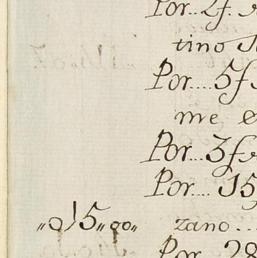 Por.. 2f.
tino
Por.... 5f
me e
Por... 3f
Por.... 15
"015"00" zano...
Por 28